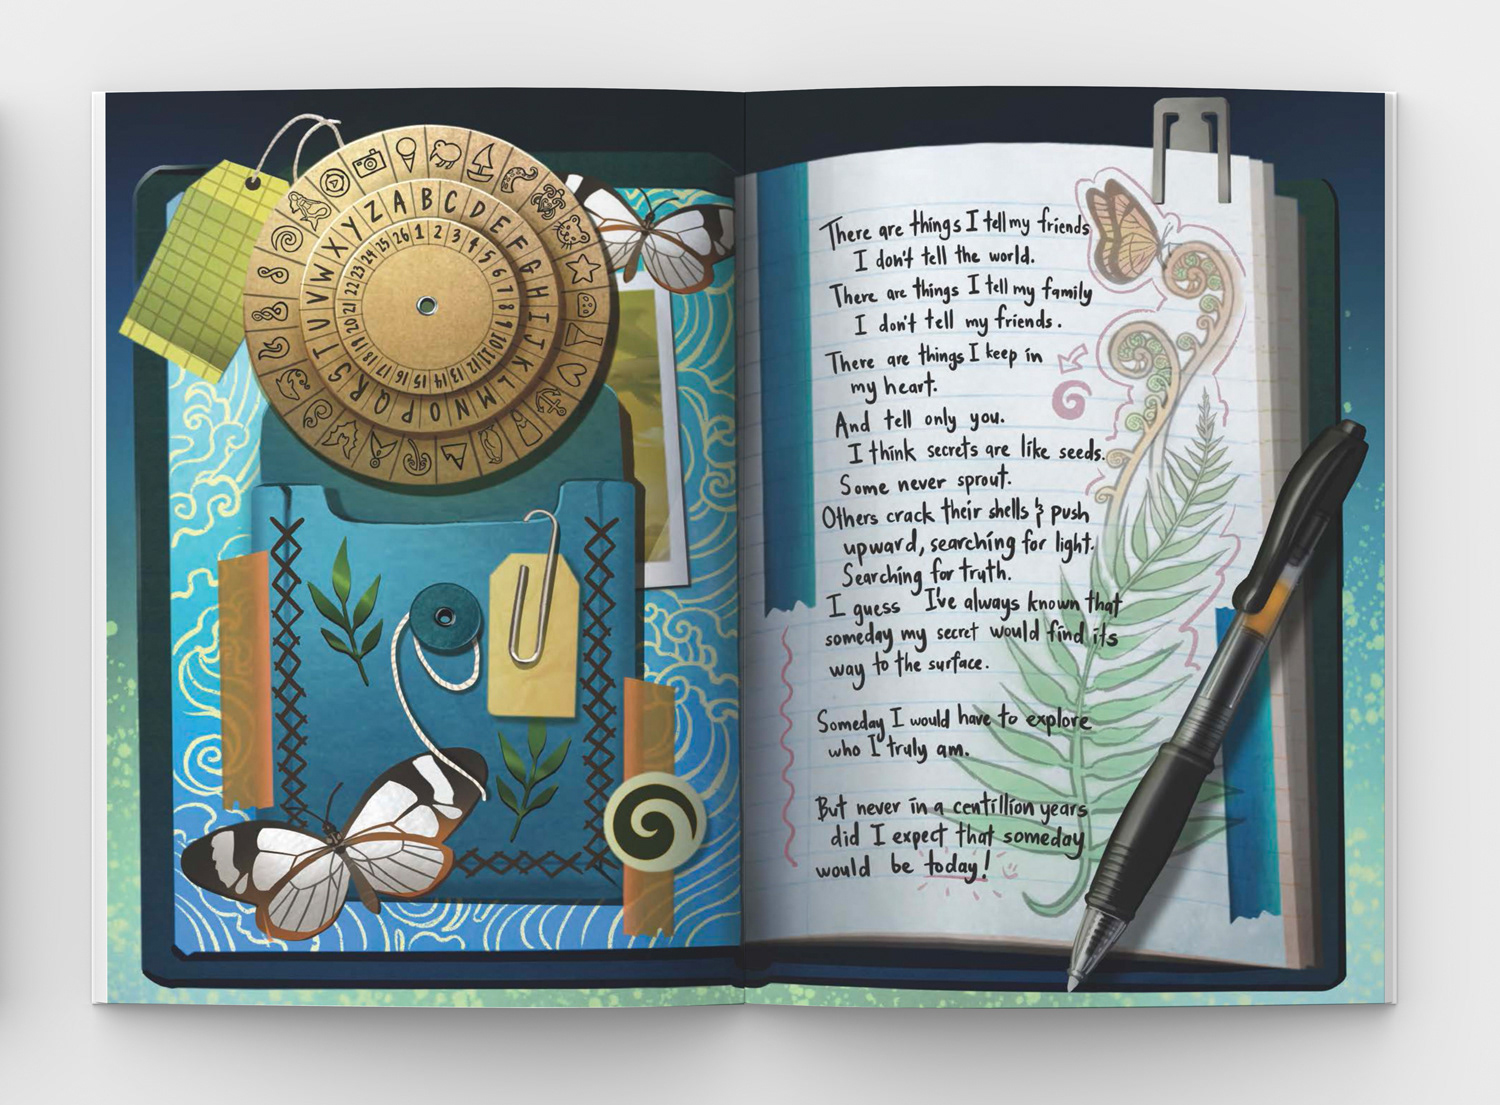 A B C D E F G H I J K L M N O P Q R S T U V W X Y Z
1 2 3 4 5 6 7 8 9 10 11 12 13 14 15 16 17 18 19 20 21 22 23 24 25 26
There are things I tell my friends
I don't tell the world.
There are things I tell my family
I don't tell my friends.
There are things I keep in
my heart.
And tell only you.
I think secrets are like seeds.
Some never sprout.
Others crack their shells & push
upward, searching for light.
Searching for truth.
I guess I've always known that
someday my secret would find its
way to the surface.
Someday I would have to explore
who I truly am.
But never in a centillion years
did I expect that someday
would be today!